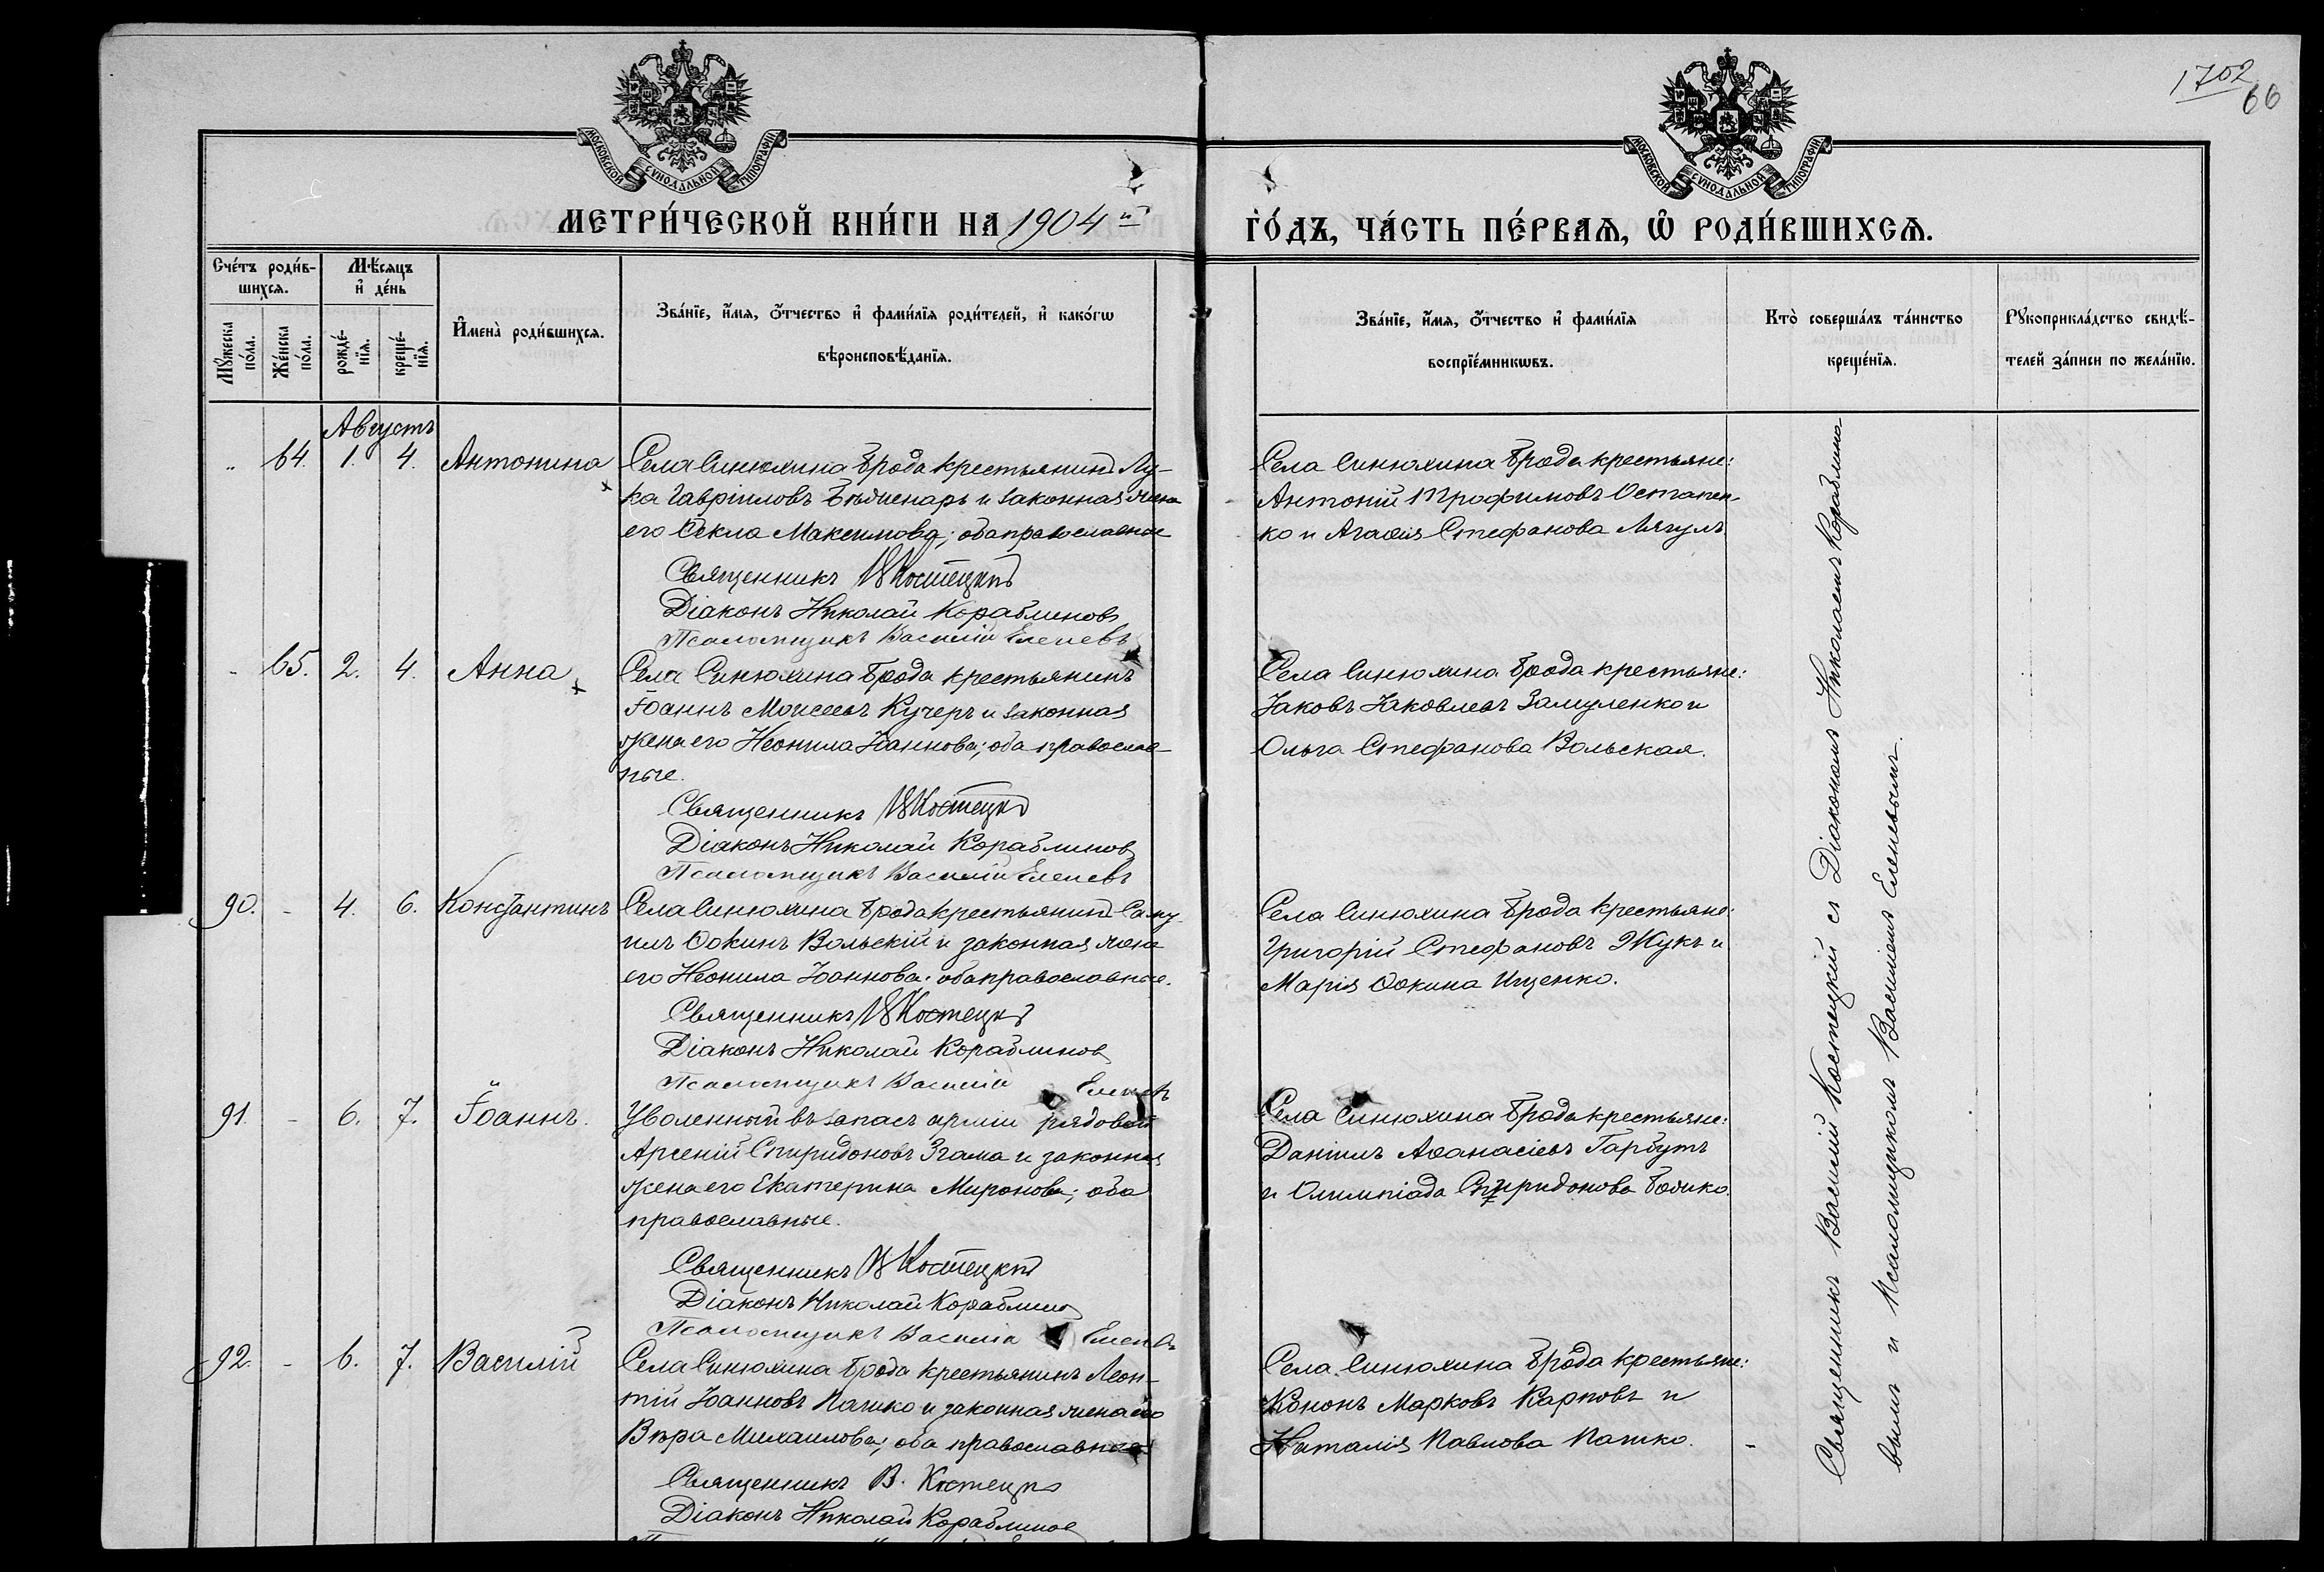 1702
66
МОСКОВСКОЙ СѴНОДАЛЬНОЙ ТИПОГРАФІИ
МОСКОВСКОЙ СѴНОДАЛЬНОЙ ТИПОГРАФІИ
МЕТРИ́ЧЕСКОЙ КНИ́ГИ НА 1904 й
ГО́ДЪ, ЧА́СТЬ ПЕ́РВАѦ, Ѡ҆ РОДИ́ВШИХСѦ.
Сче́тъ роди́в-
шихсѧ.
Мꙋжеска по́ла.
Же́нска по́ла.
Мѣ́сѧцъ
и҆ де́нь
рожде́-
нїѧ.
креще́-
нїѧ.
И҆мена̀ роди́вшихсѧ.
Зва́нїе, и҆́мѧ, о҆́тчество и҆ фами́лїѧ роди́телей, и҆ како́гѡ
вѣроисповѣ́данїѧ.
Зва́нїе, и҆́мѧ, о҆́тчество и҆ фами́лїѧ
воспрїе́мникѡвъ.
Кто̀ соверша́лъ та́инство
креще́нїѧ.
Рꙋкоприкла́дство свидѣ́-
телей за́писи по жела́нїю.
Августъ
64. 1. 4. Антонина
Села Синюхина Брода крестьянинъ Лу-
ка Гавріиловъ и законная жена
его Ѳекла Максимова; оба православные
Священникъ В Костецкій
Діаконъ Николай Кораблиновъ
Псаломщикъ Василій Еленевъ
Села Синюхина Брода крестьяне:
Антоній Трофимовъ Остапен-
ко и Агаѳія Стефанова Лягулъ
65. 2. 4. Анна
Села Синюхина Брода крестьянинъ
Іоаннъ Моисеевъ Кучеръ и законная
жена его Неонила Іоаннова; оба православ-
ные.
Священникъ В Костецкій
Діаконъ Николай Кораблиновъ
Псаломщикъ Василій Еленевъ
Села Синюхина Брода крестьяне:
Іаковъ Іаковлевъ Замуленко и
Ольга Стефанова Вольская.
90. - 4. 6. Константинъ
Села Синюхина Брода крестьянинъ Саму-
илъ Ѳокинъ Вольскій и законная жена
его Неонила Іоаннова; оба православные.
Священникъ В Костецкій
Діаконъ Николай Кораблиновъ
Псаломщикъ Василій Еленевъ
Села Синюхина Брода крестьяне:
Григорій Стефановъ Жукъ и
Марія Ѳокина Ищенко.
91. - 6. 7. Іоаннъ.
Уволенный въ запасъ арміи рядовой
Арсеній Спиридоновъ Згама и законная
жена его Екатерина Миронова; оба
православные.
Священникъ В Костецкій
Діаконъ Николай Кораблиновъ
Псаломщикъ Василій Еленевъ
Села Синюхина Брода крестьяне:
Даніилъ Аѳанасіевъ Гарбутъ
и Олимпіада Спиридонова Бойко.
92. - 6. 7. Василій
Села Синюхина Брода крестьянинъ Леон-
тій Іоанновъ Пашко и законная жена его
Вѣра Михаилова; оба православные
Священникъ В. Костецкій
Діаконъ Николай Кораблиновъ
Села Синюхина Брода крестьяне:
Кононъ Марковъ Карповъ и
Наталія Павлова Пашко.
Священникъ Василій Костецкій съ Діакономъ Николаемъ Кораблино-
вымъ и Псаломщикомъ Василіемъ Еленевымъ.